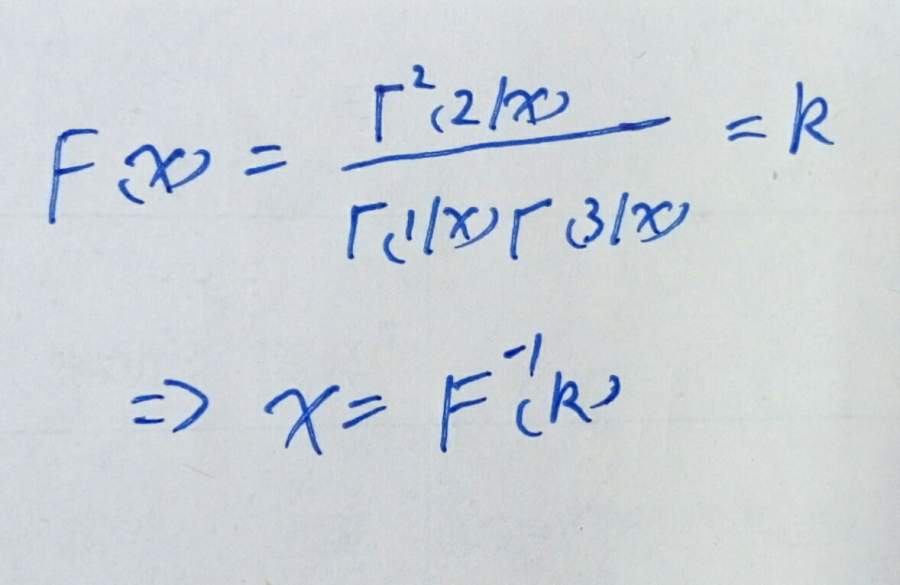 F(x) = Γ²(2/x) / Γ(1/x)Γ(3/x) = k
=> x = F⁻¹(k)